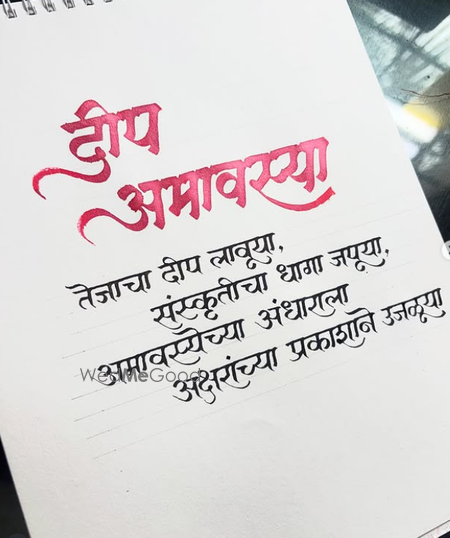 दीप
अमावस्या
तेजाचा दीप लावूया,
संस्कृतीचा धागा जपूया,
अमावस्येच्या अंधाराला
WedMeGood
अक्षरांच्या प्रकाशाने उजळूया